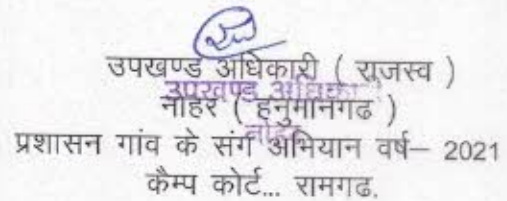 उपखण्ड अधिकारी ( राजस्व )
उपखण्ड अधिका
नोहर ( हनुमानगढ )
नोहर
प्रशासन गांव के संग अभियान वर्ष– 2021
कैम्प कोर्ट... रामगढ.